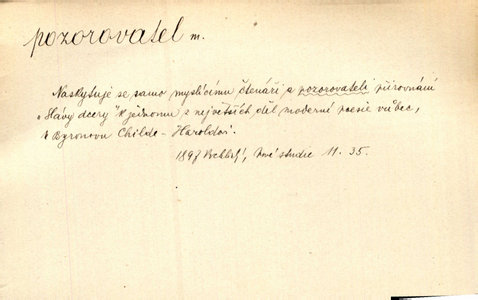 pozorovatel m.
Naskytuje se samo myslícímu čtenáři a pozorovateli přirovnání
„Slávy dcery" k jednomu z největších děl moderní poesie vůbec,
k Byronovu Childe-Haroldovi.
1897 Vrchlický, studie 11. 35.